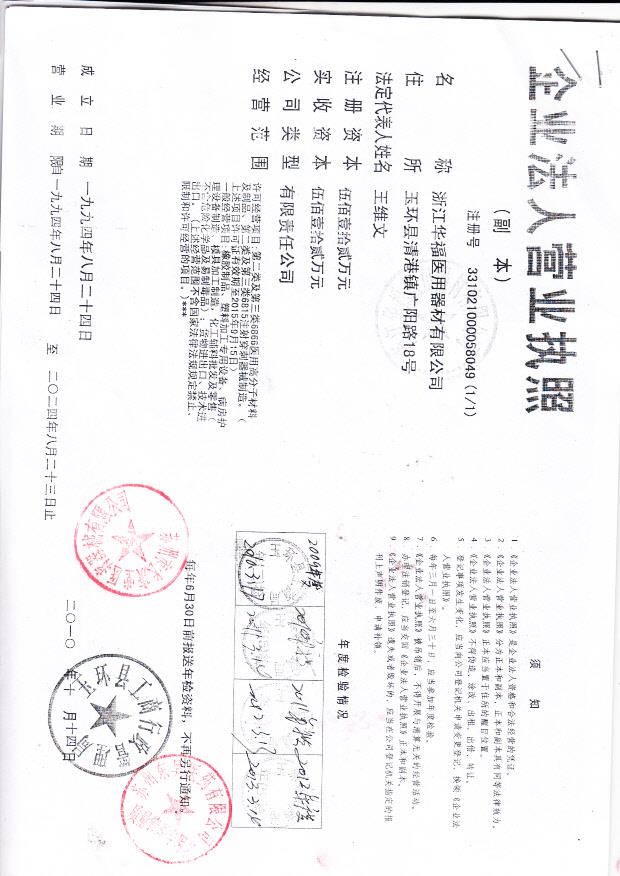 企业法人营业执照
（副 本）
注册号 331021000058049 (1/1)
名 称 浙江华福医用器材有限公司
住 所 玉环县清港镇广阳路18号
法定代表人姓名 王维文
注 册 资 本 伍佰壹拾贰万元
实 收 资 本 伍佰壹拾贰万元
公 司 类 型 有限责任公司
经 营 范 围 许可经营项目：第二类及第三类6866医用高分子材料
及制品、第二类及第三类6815注射穿刺器械制造。（
上述项目许可证有效期至2015年9月15日）
一般经营项目：橡胶制品、塑料加工专用设备、病房护
理设备制造，模具加工制造，化工辅料批发及零售（
不含危险化学品及易制毒品）；货物进出口、技术进
出口。（上述经营范围不含国家法律法规规定禁止、
限制和许可经营的项目。）***
成 立 日 期 一九九四年八月二十四日
营 业 期 限 自一九九四年八月二十四日 至 二〇二四年八月二十三日止
须 知
1 《企业法人营业执照》是企业法人资格和合法经营的凭证。
2 《企业法人营业执照》分为正本和副本，正本和副本具有同等法律效力。
3 《企业法人营业执照》正本应当置于住所的醒目位置。
4 《企业法人营业执照》不得伪造、涂改、出租、出借、转让。
5 登记事项发生变化，应当向公司登记机关申请变更登记，换领《企业法
人营业执照》。
6. 每年三月一日至六月三十日，应当参加年度检验。
7. 《企业法人营业执照》被吊销后，不得开展与清算无关的经营活动。
8. 办理注销登记，应当交回《企业法人营业执照》正本和副本。
9 《企业法人营业执照》遗失或者毁坏的，应当在公司登记机关指定的报
刊上声明作废，申请补领。
年度检验情况
2009年度
2010年度
2011年度
2012年度
2013.3.16
每年6月30日前报送年检资料，不再另行通知。
玉环县工商行政管理局
二〇一〇 年 十 月十四日